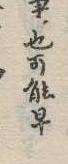 也可能早